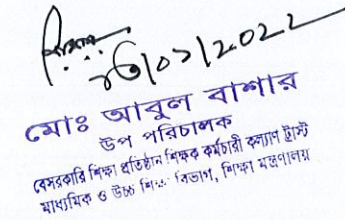 ২৩/০১/২০২২
মোঃ আবুল বাশার
উপ পরিচালক
বেসরকারি শিক্ষা প্রতিষ্ঠান শিক্ষক কর্মচারী কল্যাণ ট্রাস্ট
মাধ্যমিক ও উচ্চ শিক্ষা বিভাগ, শিক্ষা মন্ত্রণালয়